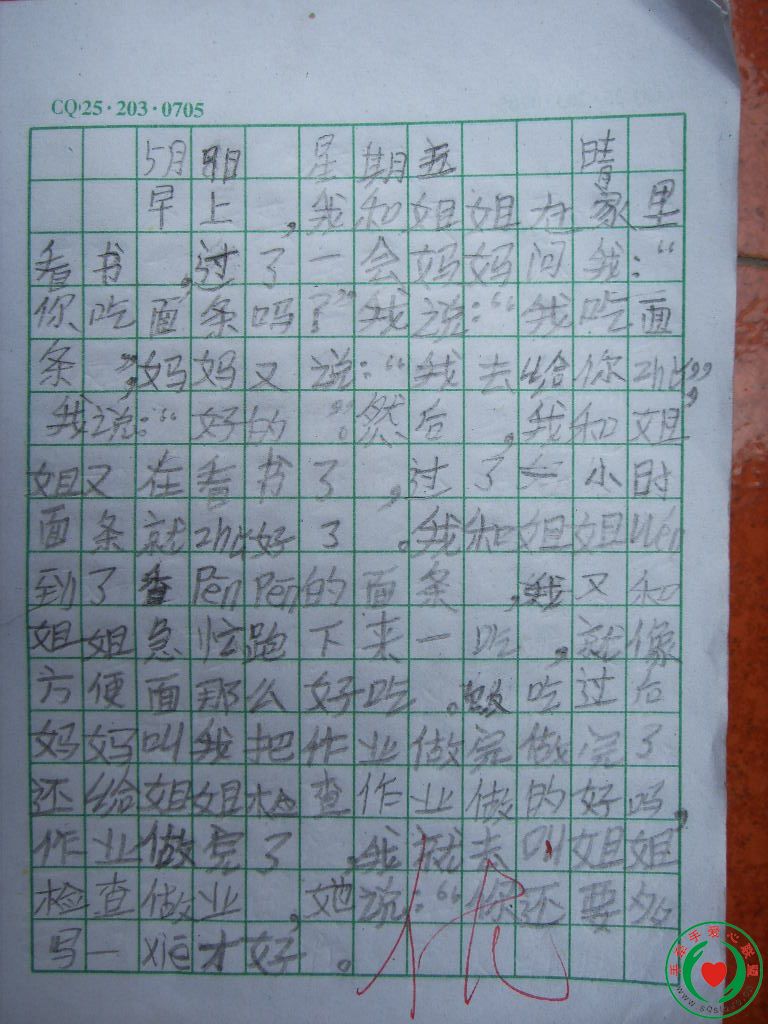 CQ25·203·0705
5月8日 星期五 晴
早上,我和姐姐在家里
看书,过了一会妈妈问我:“
你吃面条吗?”我说:“我吃面
条”,妈妈又说:“我去给你zhǔ”,
我说:“好的”。然后,我和姐
姐又在看书了,过了一小时
面条就zhǔ好了。我和姐姐wén
到了香Pēn Pēn的面条,我又和
姐姐急忙跑下来一吃,就像
方便面那么好吃。吃过后
妈妈叫我把作业做完做完了
还给姐姐检查作业做的好吗,
作业做完了,我就去叫姐姐
检查做业,她说:“你还要多
写一xiē才好。
优
手牵手爱心联盟